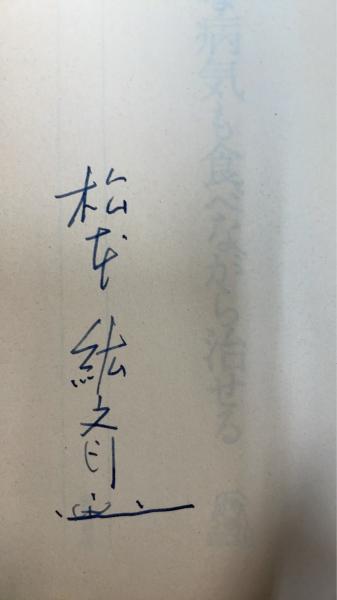 な病気も食べながら治せる
松本 紘斉